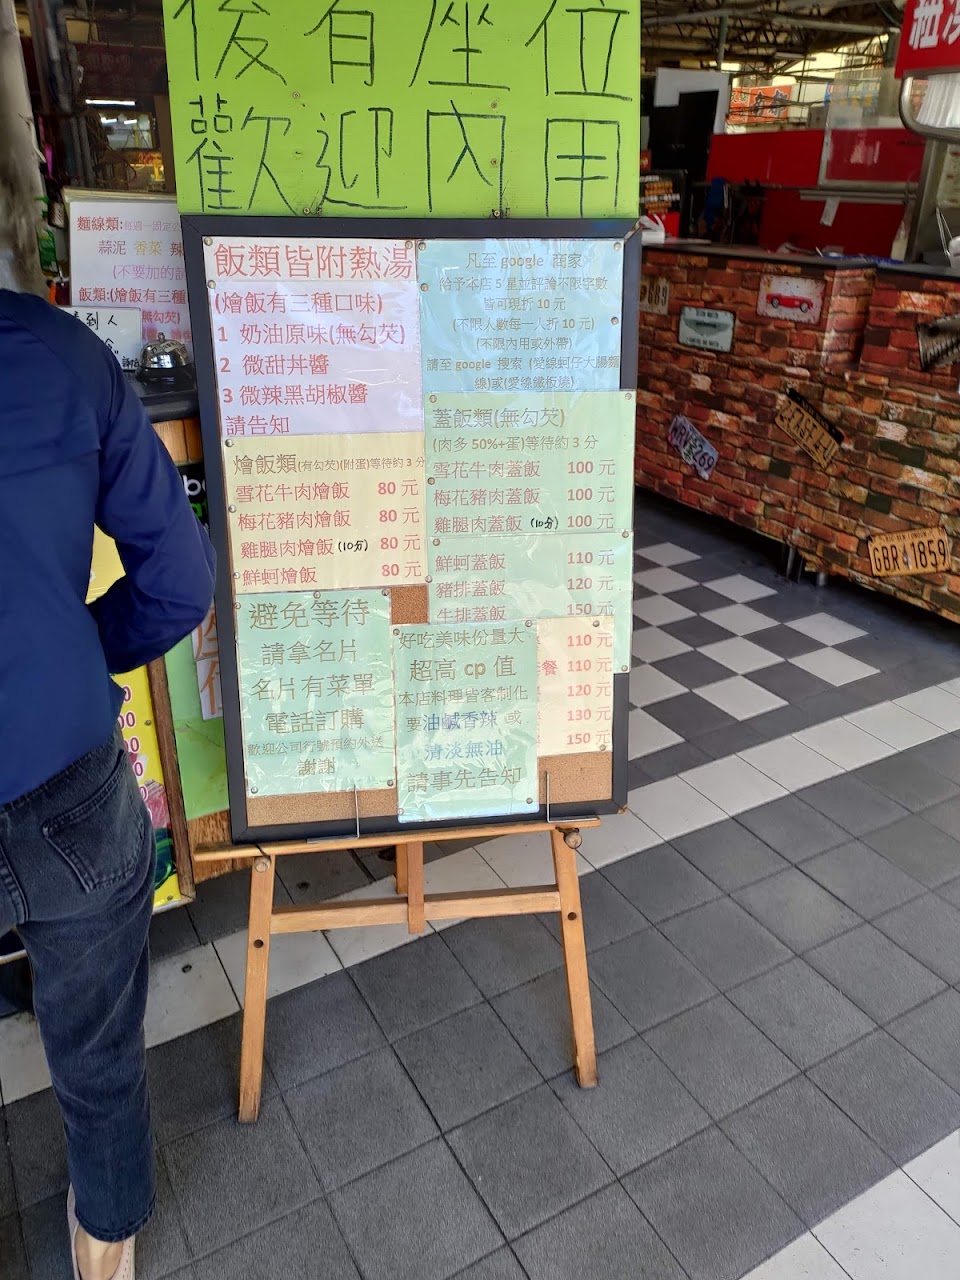 後有座位
歡迎內用
飯類皆附熱湯
(燴飯有三種口味)
1 奶油原味(無勾芡)
2 微甜丼醬
3 微辣黑胡椒醬
請告知
燴飯類(有勾芡)(附蛋)等待約 3 分
雪花牛肉燴飯 80 元
梅花豬肉燴飯 80 元
雞腿肉燴飯 (10分) 80 元
鮮蚵燴飯 80 元
避免等待
請拿名片
名片有菜單
電話訂購
歡迎公司行號預約外送
謝謝
凡至 google 商家
給予本店 5 星並評論不限字數
皆可現折 10 元
(不限人數每一人折 10 元)
(不限內用或外帶)
請至 google 搜索 (愛線蚵仔大腸麵
線)或(愛線鐵板燒)
蓋飯類(無勾芡)
(肉多 50%+蛋)等待約 3 分
雪花牛肉蓋飯 100 元
梅花豬肉蓋飯 100 元
雞腿肉蓋飯 (10分) 100 元
鮮蚵蓋飯 110 元
豬排蓋飯 120 元
牛排蓋飯 150 元
好吃美味份量大
超高 cp 值
本店料理皆客制化
要油鹹香辣 或
清淡無油
請事先告知
110 元
餐 110 元
120 元
130 元
150 元
麵線類:
蒜泥 香菜 辣
(不要加的請
飯類:(燴飯有三種
GBR 1859